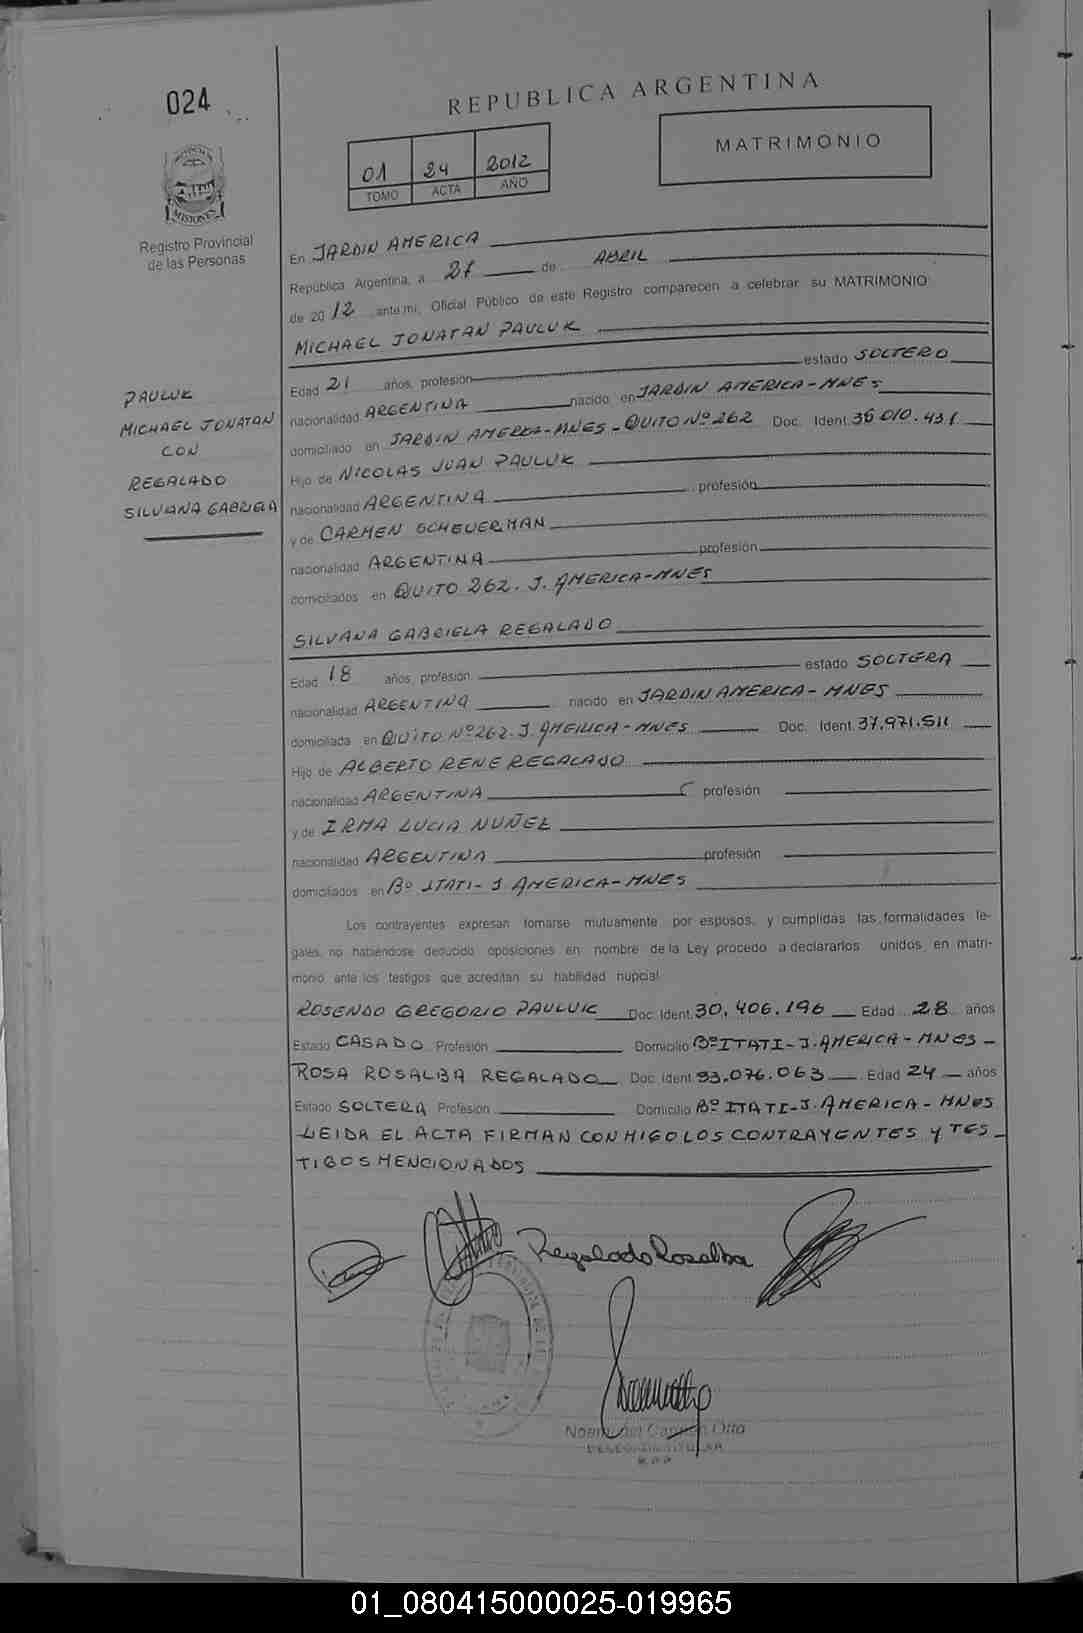 024
REPUBLICA ARGENTINA
01 24 2012
TOMO ACTA AÑO
MATRIMONIO
MISIONES
Registro Provincial
de las Personas
En JARDIN AMERICA
República Argentina, a 27 de ABRIL
de 20 12 ante mi, Oficial Público de este Registro comparecen a celebrar su MATRIMONIO:
MICHAEL JONATAN PAULUK
Edad 21 años, profesión estado SOLTERO
nacionalidad ARGENTINA nacido en JARDIN AMERICA-MNES
domiciliado en JARDIN AMERICA-MNES-QUITO Nº 262 Doc. Ident. 36 010.431
Hijo de NICOLAS JUAN PAULUK
nacionalidad ARGENTINA profesión
y de CARMEN SCHEUERMAN
nacionalidad ARGENTINA profesión
domiciliados en QUITO 262. J. AMERICA-MNES
PAULUK
MICHAEL JONATAN
CON
REGALADO
SILVANA GABRIELA
SILVANA GABRIELA REGALADO
Edad 18 años, profesión estado SOLTERA
nacionalidad ARGENTINA nacido en JARDIN AMERICA-MNES
domiciliada en QUITO Nº262-J.AMERICA-MNES Doc. Ident. 37.971.511
Hijo de ALBERTO RENE REGALADO
nacionalidad ARGENTINA profesión
y de IRMA LUCIA NUÑEZ
nacionalidad ARGENTINA profesión
domiciliados en Bº ITATI-J AMERICA-MNES
Los contrayentes expresan tomarse mutuamente por esposos, y cumplidas las formalidades le-
gales, no habiéndose deducido oposiciones en nombre de la Ley procedo a declararlos unidos en matri-
monio ante los testigos que acreditan su habilidad nupcial.
ROSENDO GREGORIO PAULUK Doc. Ident. 30.406.196 Edad 28 años
Estado CASADO Profesión Domicilio Bº ITATI-J.AMERICA-MNES-
ROSA ROSALBA REGALADO Doc. Ident. 33.076.063 Edad 24 años
Estado SOLTERA Profesión Domicilio Bº ITATI-J.AMERICA-MNES
LEIDA EL ACTA FIRMAN CONMIGO LOS CONTRAYENTES Y TES-
TIGOS MENCIONADOS
Regalado Rosalba
Noemi del Carmen Otto
01_080415000025-019965